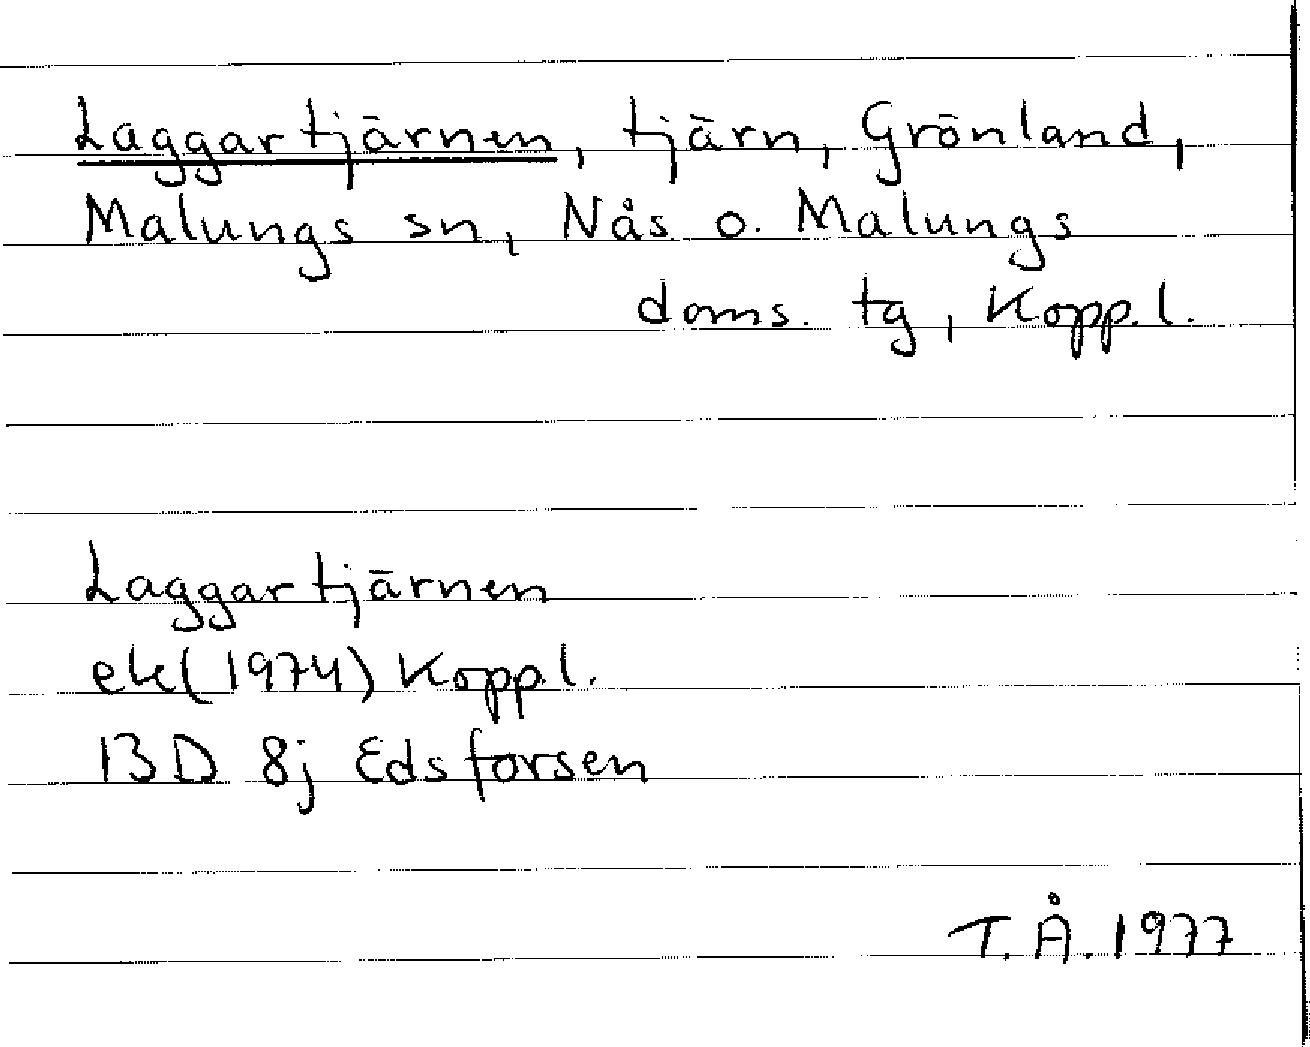 Laggartjärnen, tjärn, Grönland,
Malungs sn, Nås o. Malungs
doms. tg, Kopp.l.
Laggartjärnen
ek(1974) Koppl.
13D 8j Edsforsen
T.Å. 1977